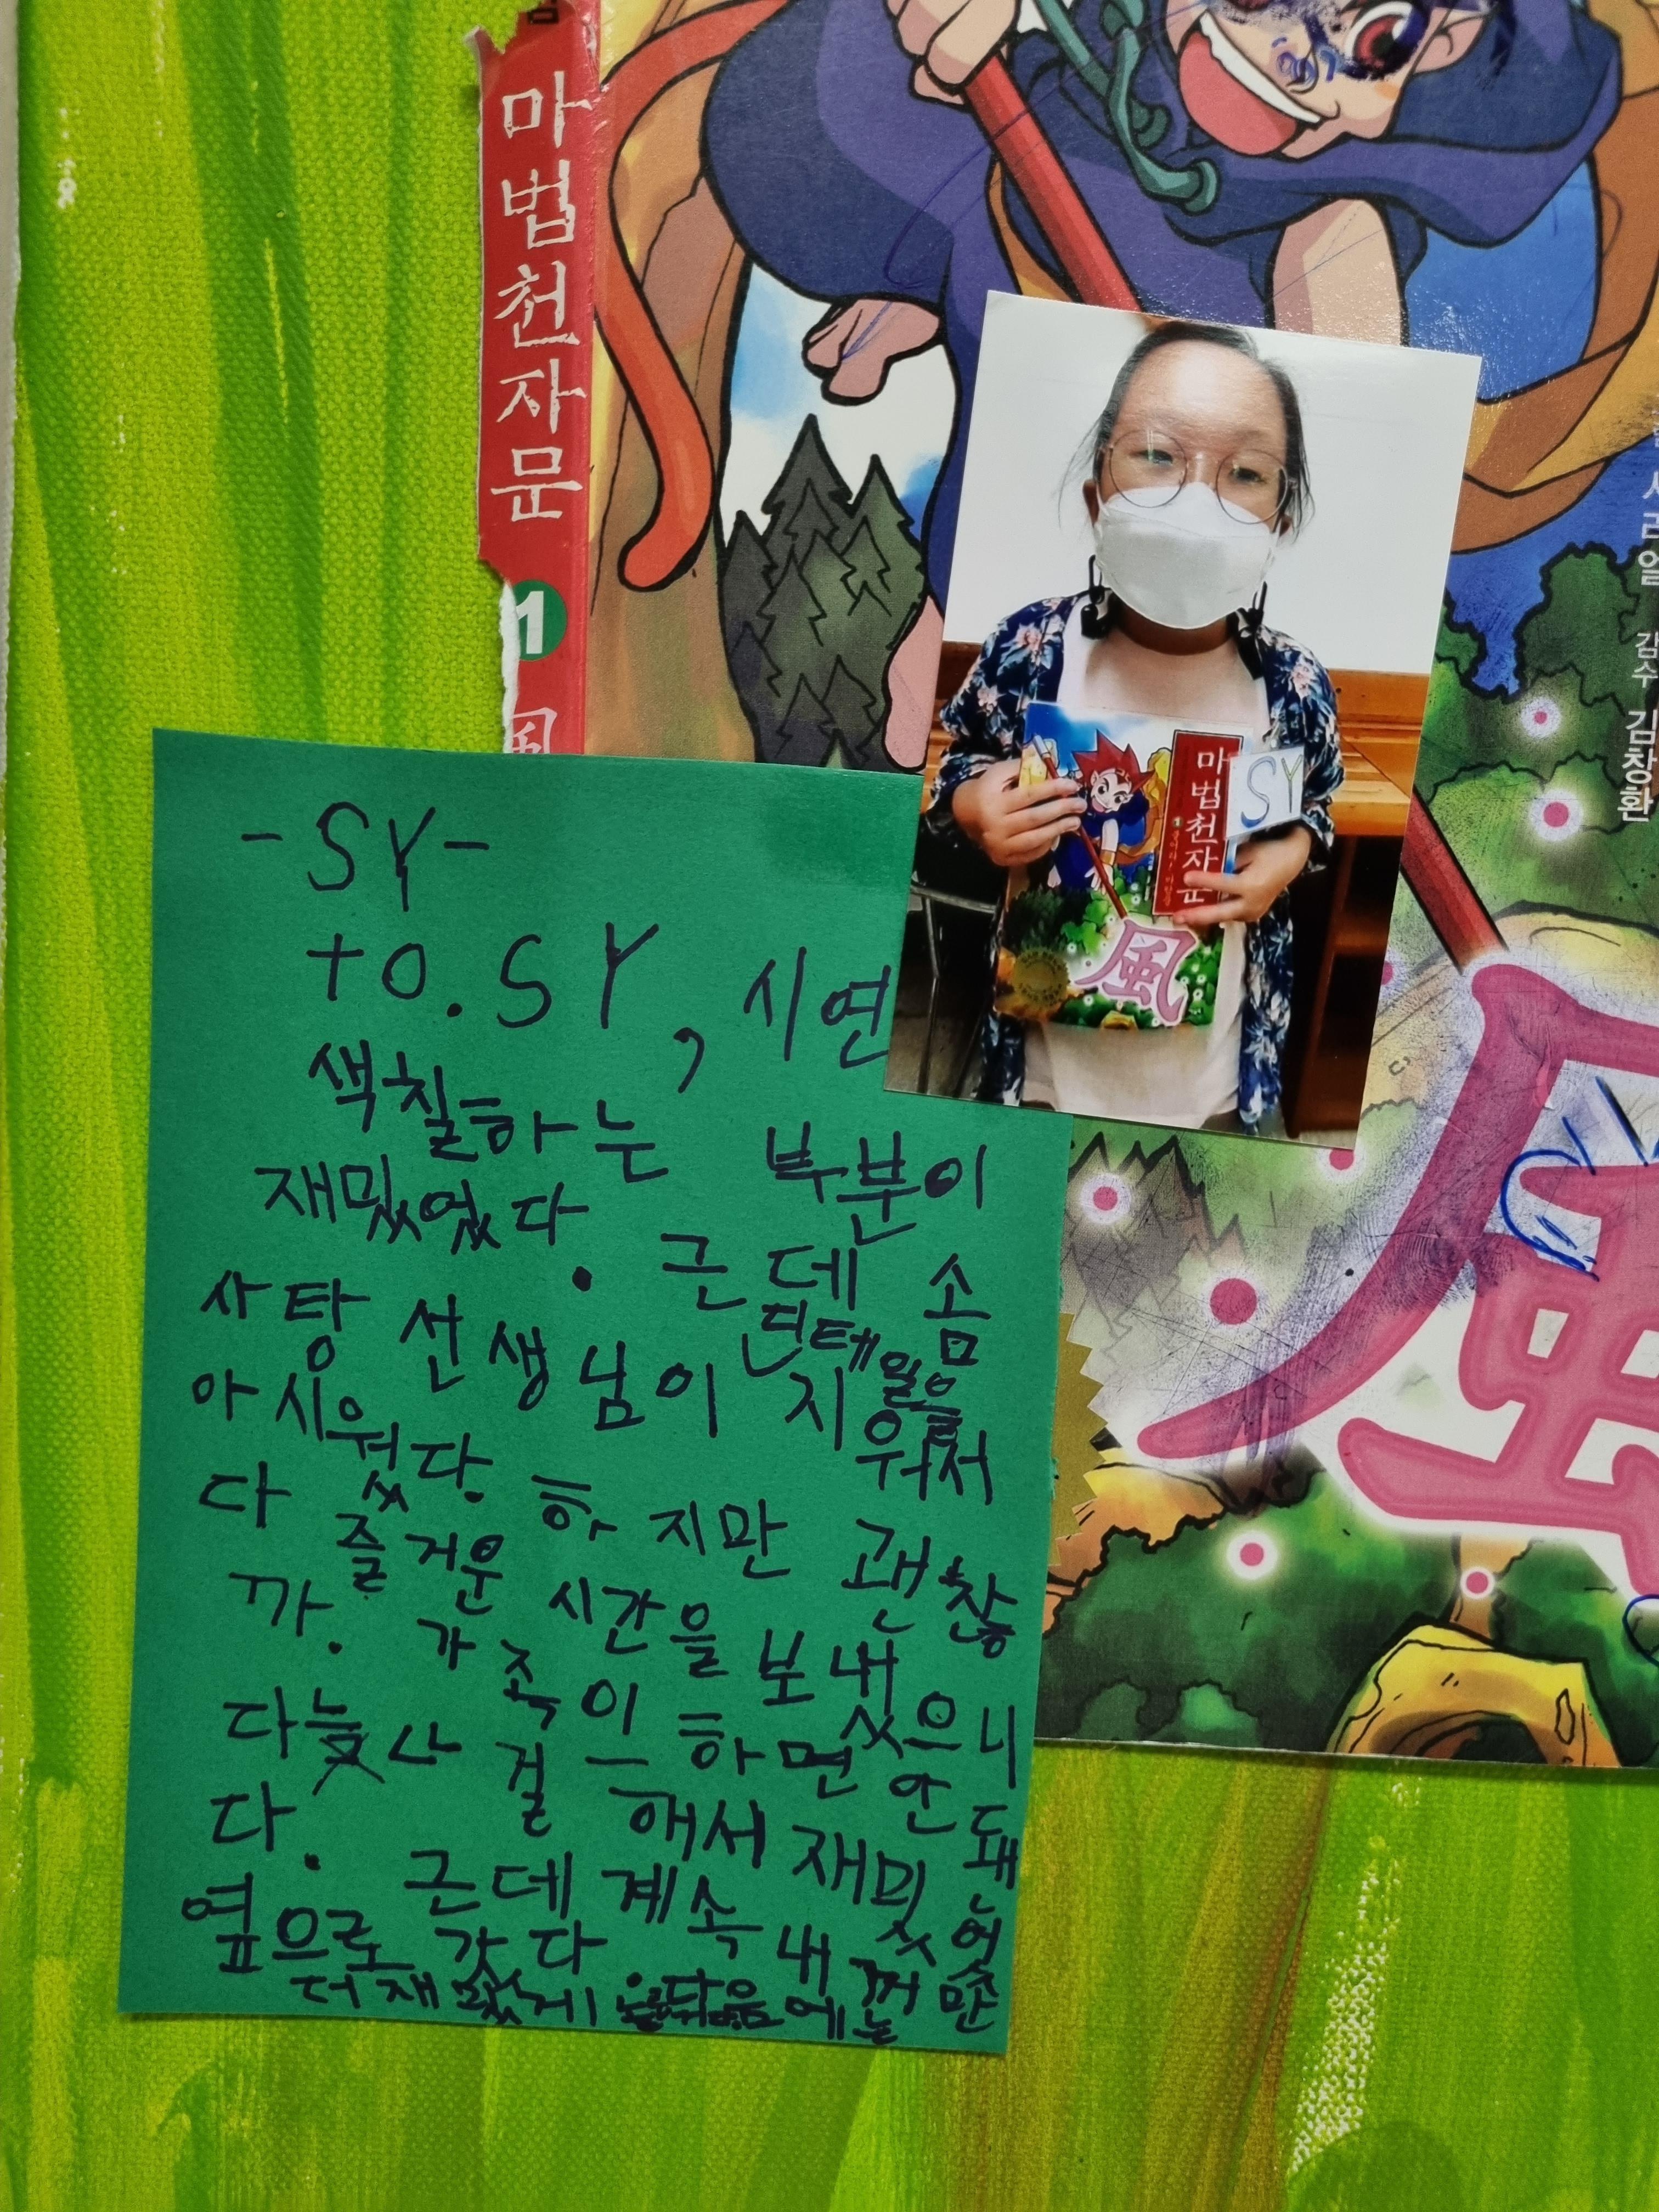 마법천자문
1
風
감수 김창환
마법천자문
1
SY
風
風
-SY-
to. SY, 시연
색칠하는 부분이
재밌었다. 근데 솜
사탕 선생님이 지워서
아시웠다. 하지만 괜찮
다 즐거운 시간을 보냈으니
까. 가족이 하면 안돼
걸 해서 재밌었
다. 근데 계속 내꺼만
옆으로 갔다
더 재밌게